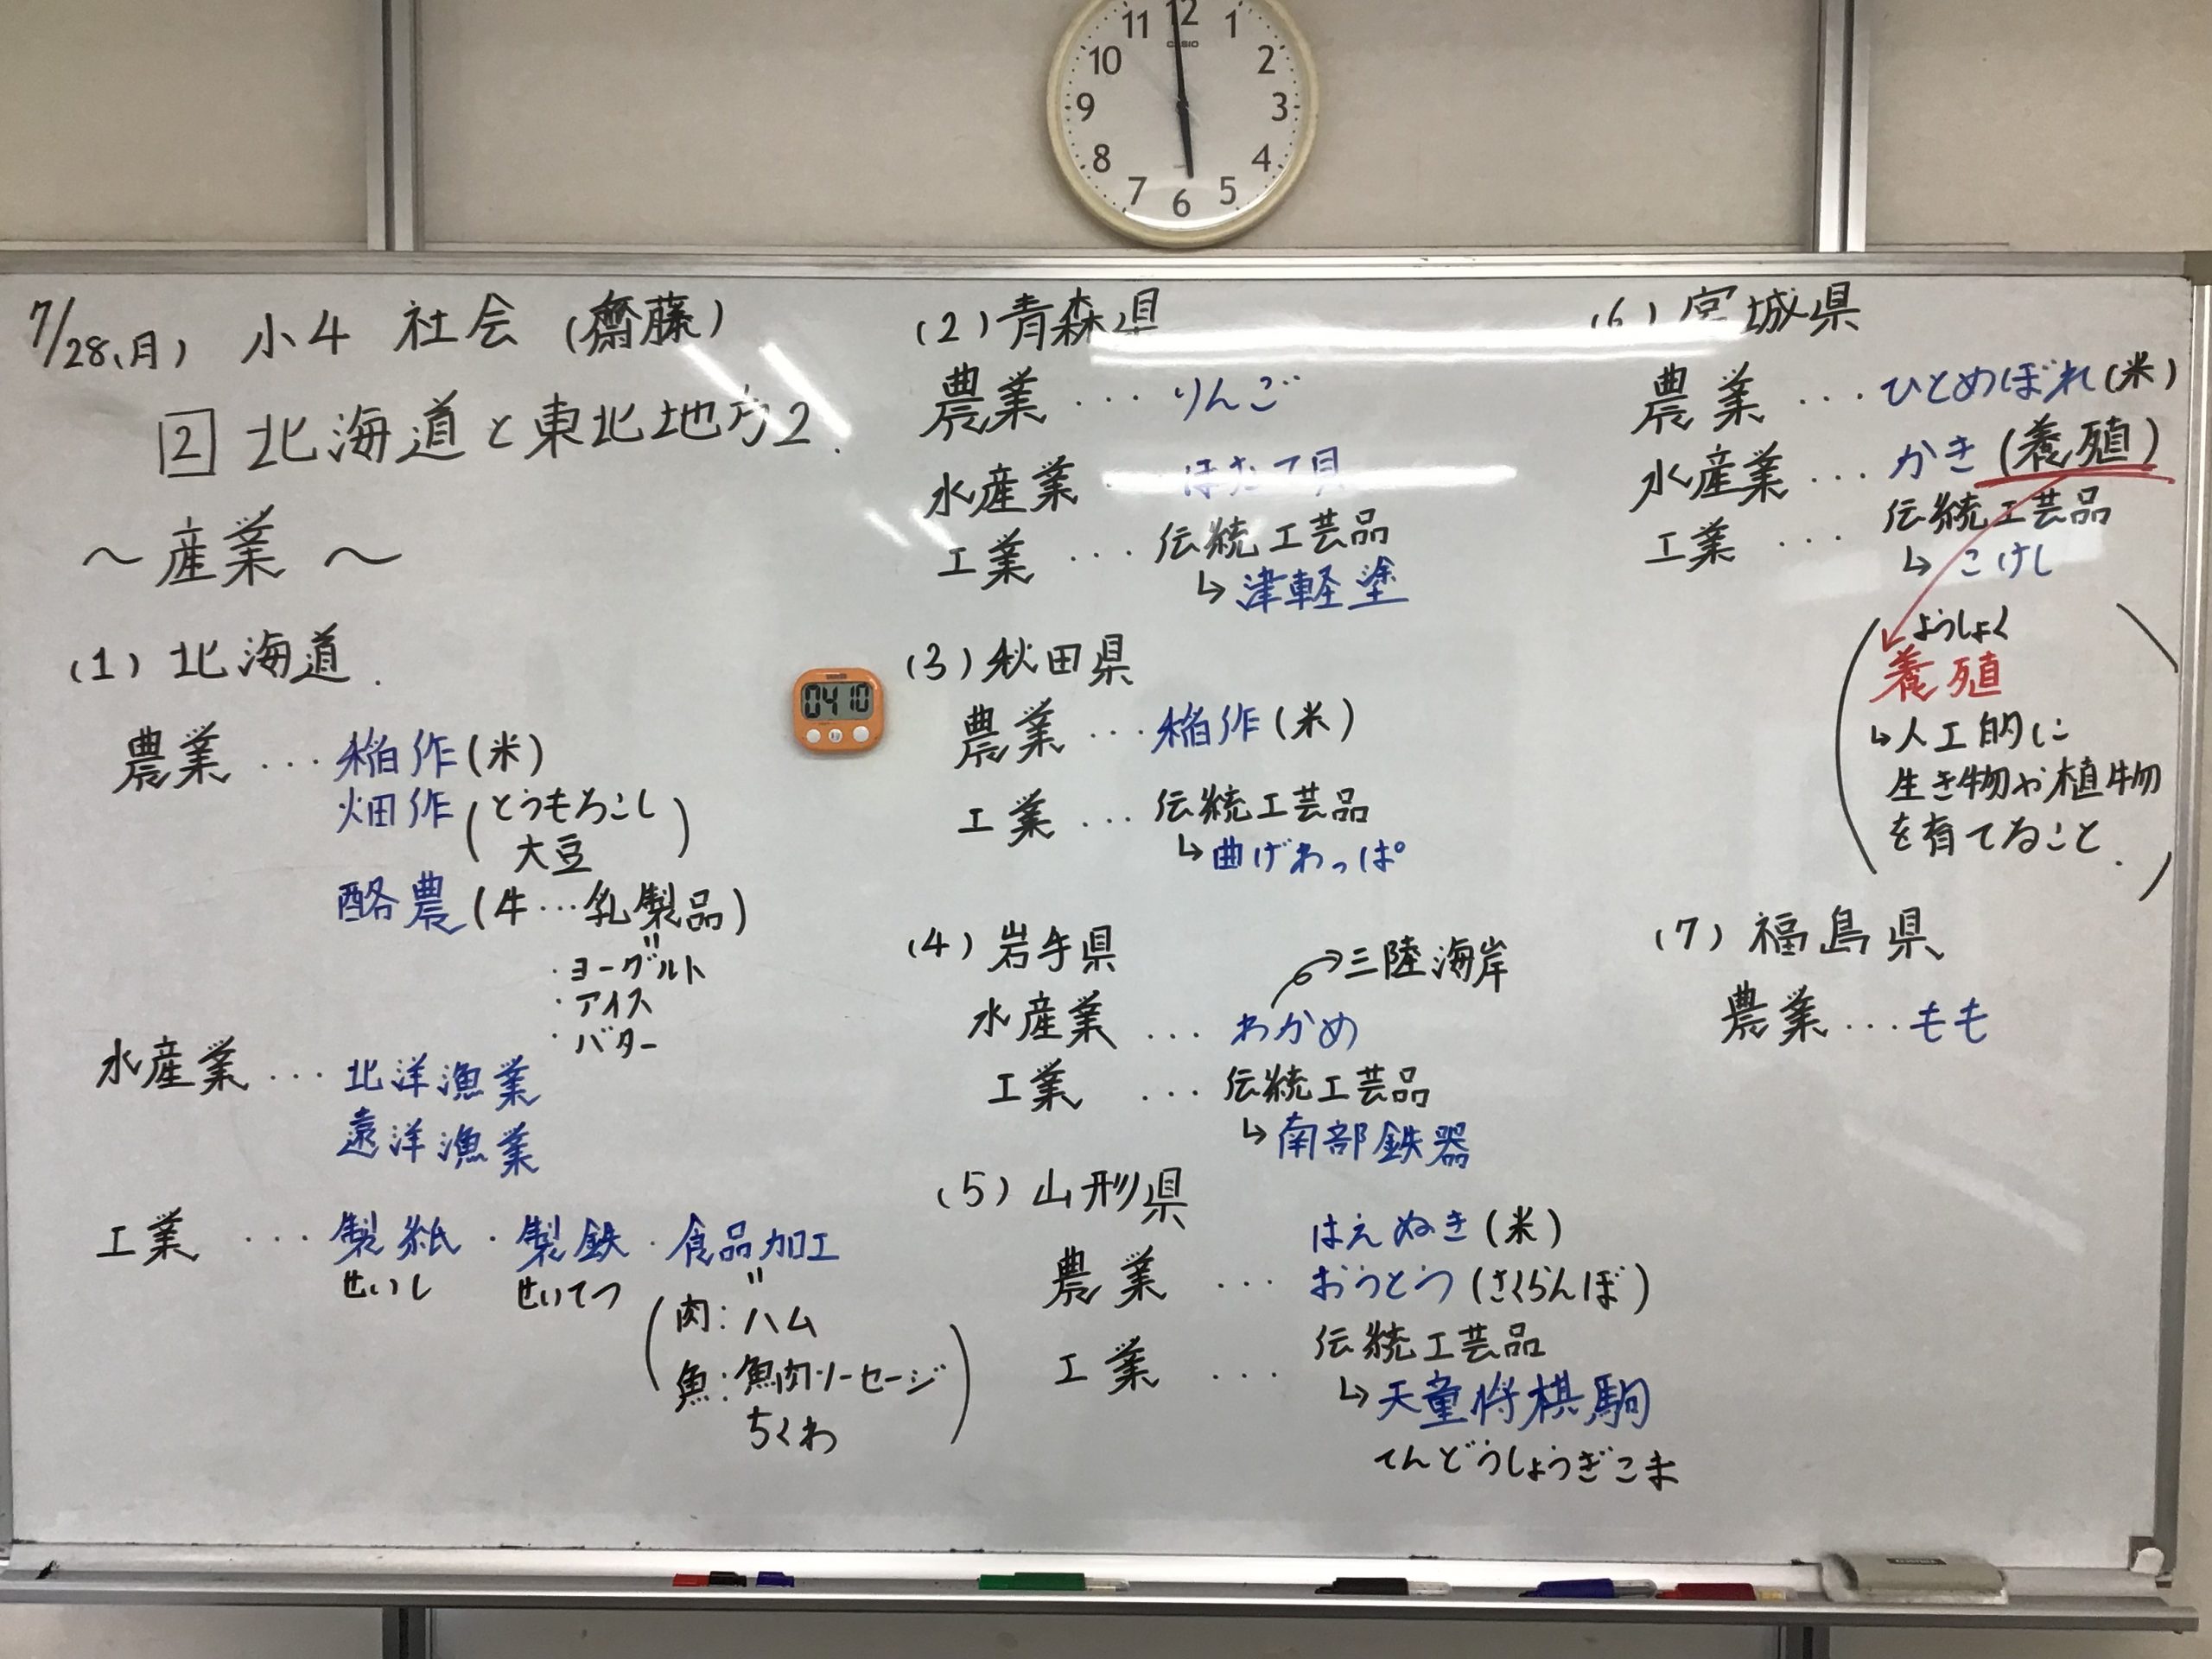 11 12 1
10 2
9 3
8 4
7 6 5
CASIO
7/28(月) 小4 社会 (齋藤)
2 北海道と東北地方2.
～産業～
(1) 北海道.
農業 … 稲作(米)
畑作(とうもろこし
大豆)
酪農(牛…乳製品)
〃
・ヨーグルト
・アイス
・バター
水産業 … 北洋漁業
遠洋漁業
工業 … 製紙・製鉄・食品加工
せいし せいてつ 〃
(肉:ハム
魚:魚肉ソーセージ
ちくわ)
04 10
(2) 青森県
農業 … りんご
水産業 … ほたて貝
工業 … 伝統工芸品
↳ 津軽塗
(3) 秋田県
農業 … 稲作(米)
工業 … 伝統工芸品
↳ 曲げわっぱ
(4) 岩手県
→三陸海岸
水産業 … わかめ
工業 … 伝統工芸品
↳ 南部鉄器
(5) 山形県
はえぬき(米)
農業 … おうとう(さくらんぼ)
伝統工芸品
工業 …
↳ 天童将棋駒
てんどうしょうぎこま
(6) 宮城県
農業 … ひとめぼれ(米)
水産業 … かき(養殖)
伝統工芸品
工業 …
↳ こけし
ようしょく
養殖
↳人工的に
生き物や植物
を育てること.
(7) 福島県
農業 … もも